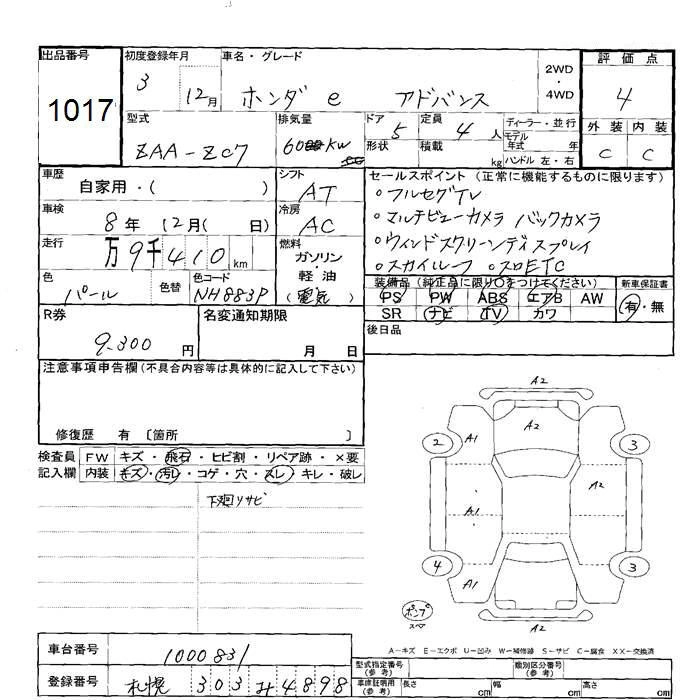 出品番号
1017
初度登録年月
3 12月
車名・グレード
ホンダ e アドバンス
2WD
4WD
評価点
4
外装 内装
C C
型式
ZAA-ZC7
排気量
60 KW
ドア
5
形状
定員
4 人
積載
kg
ディーラー・並行
モデル
年式 年
ハンドル 左・右
車歴
自家用・( )
シフト
AT
車検
8年 12月( 日)
冷房
AC
走行
万9千410km
燃料
ガソリン
軽油
(電気)
色
パール
色替
色コード
NH883P
セールスポイント (正常に機能するものに限ります)
○フルセグTV
○マルチビューカメラ バックカメラ
○ウィンドスクリーンディスプレイ
○スカイルーフ ○スロETC
装備品 (純正品に限り○をつけてください)
PS PW ABS エアB AW
SR ナビ TV カワ
新車保証書
有・無
後日品
R券
9.300 円
名変通知期限
月 日
注意事項申告欄 (不具合内容等は具体的に記入して下さい)
修復歴 有 〔箇所 〕
検査員
記入欄
FW キズ・飛石・ヒビ割・リペア跡・×要
内装 キズ・汚レ・コゲ・穴・スレ・キレ・破レ
下廻リサビ
A2
A2
A1
A2
A1
A1
A2
2 3
4 3
ポンプ
A-キズ E-エクボ U-凹み W-補修跡 S-サビ C-腐食 XX-交換済
車台番号
1000831
登録番号
札幌 303 み 4898
型式指定番号
(参考)
類別区分番号
(参考)
車庫証明用
(参考)
長さ cm 幅 cm 高さ cm